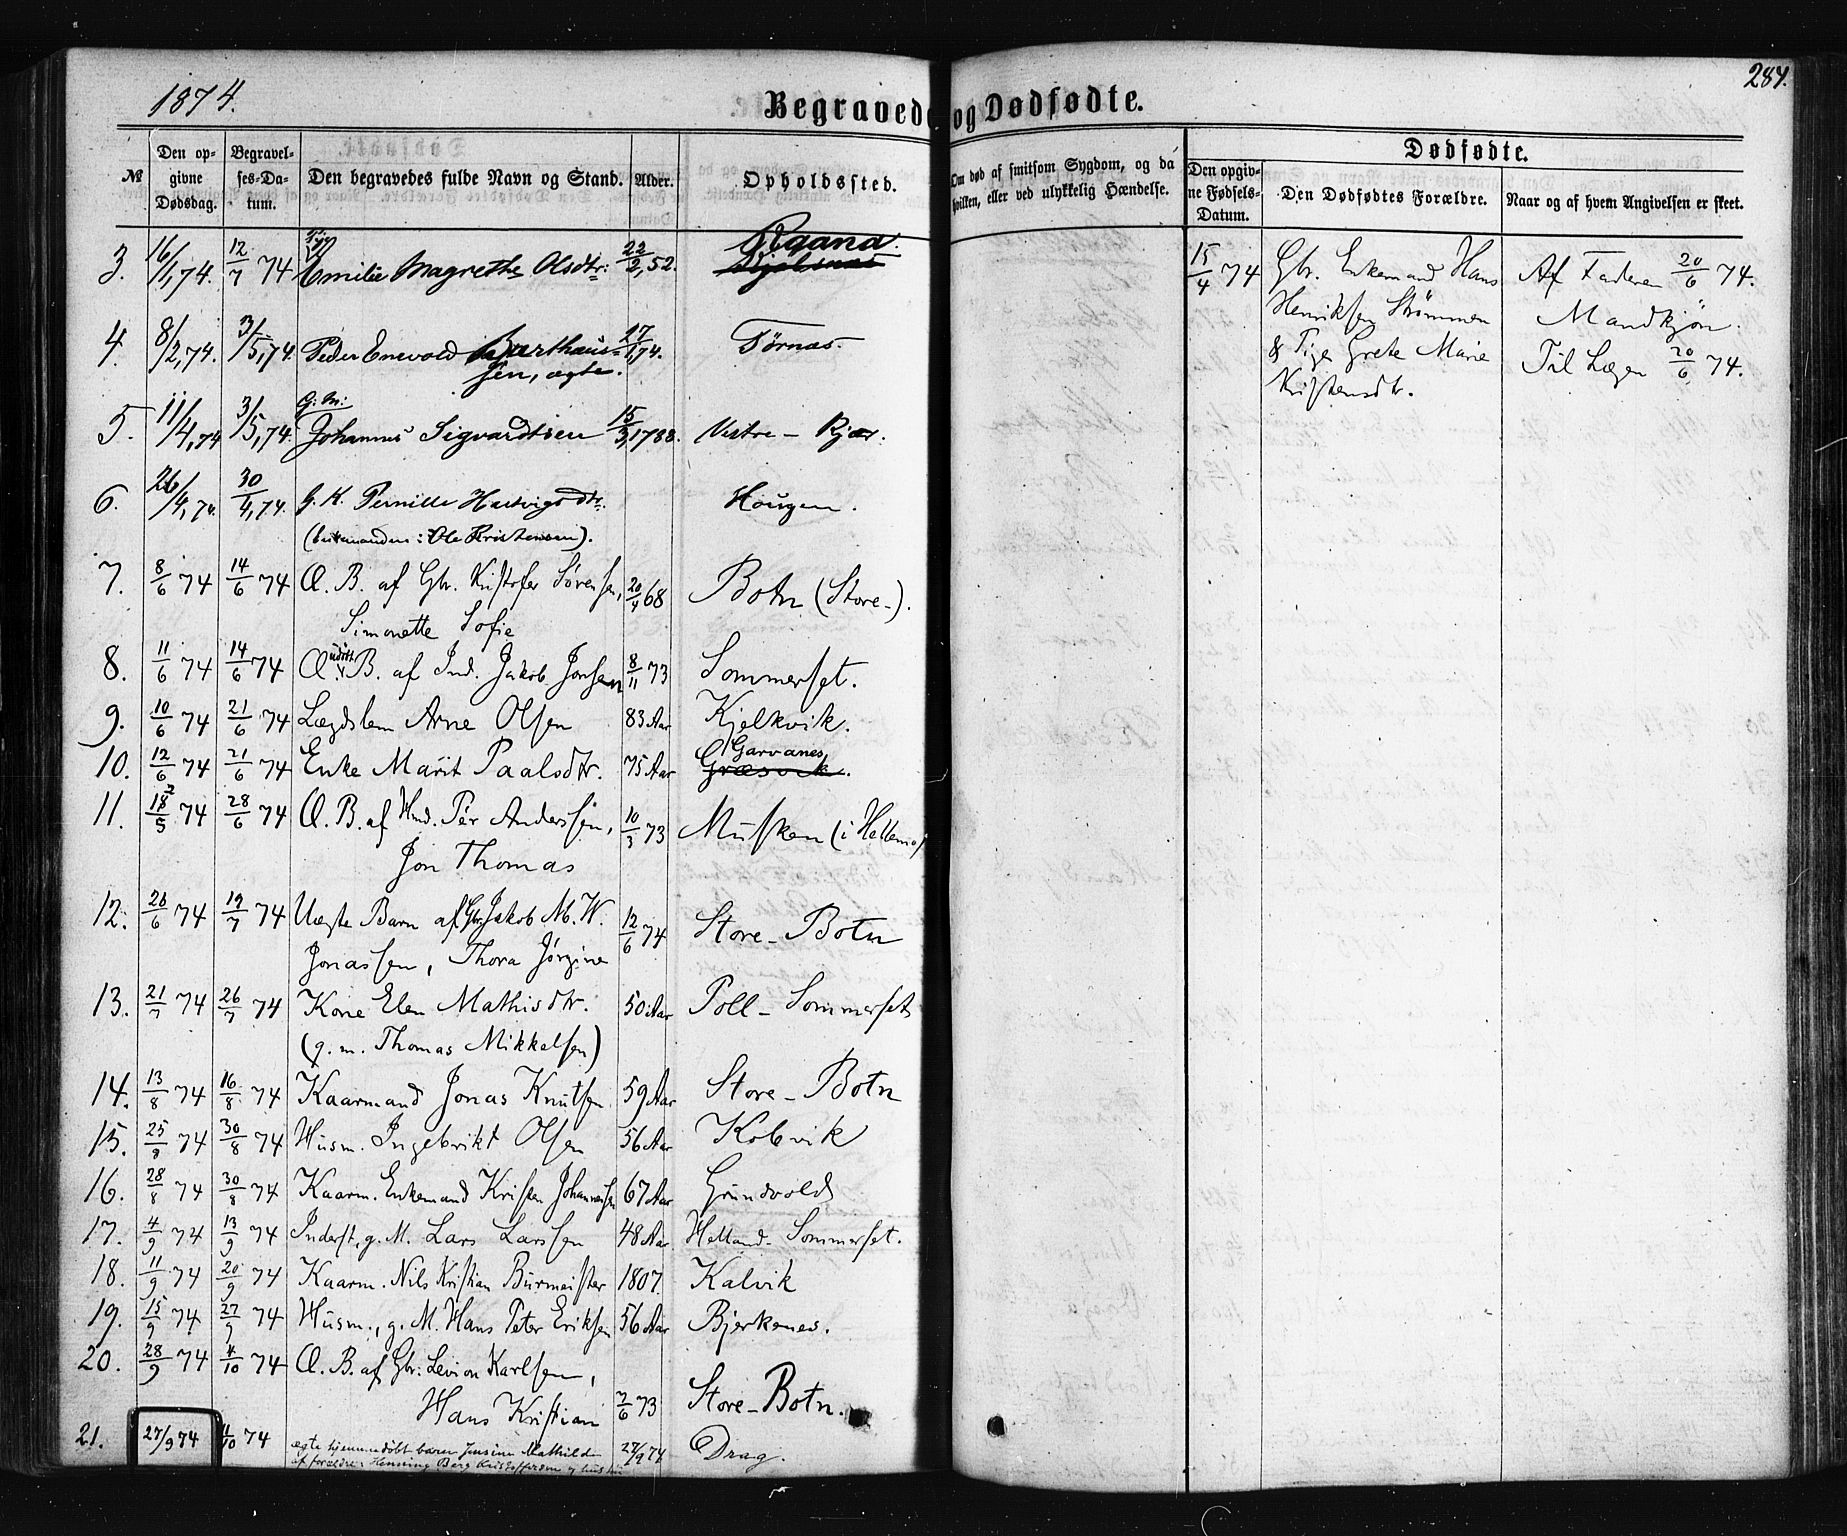 1874.
284.
Begravede og Dødfødte.
№
Den opgivne Dødsdag.
Begravelses-Datum.
Den begravedes fulde Navn og Stand.
Alder.
Opholdssted.
Om død af smitsom Sygdom, og da hvilken, eller ved ulykkelig Hændelse.
Dødfødte.
Den opgivne Fødsels-Datum.
Den Dødfødtes Forældre.
Naar og af hvem Angivelsen er skeet.
3. 16/1,74. 12/7 74 Emilie Magrethe Olsdtr: 22/2,52. Raana.
4. 8/2,74. 3/5,74. Peder Enevold Barthaus=
sen, ægte. 17/1,74. Tørnæs.
G: M:
5. 11/4,74 3/5,74. Johannes Sigvardtsen 15/3,1788. Vestre- Kjær.
6. 26/4,74. 30/4,74. G. K. Pernille Hartvigsdtr. Haugen.
(Ole Kristensen).
7. 8/6 74 14/6 74 Æ. B. af Gbr. Kristofer Sørensen, 20/4 68 Botn (Store-).
Simonette Sofie
8. 11/6 74 14/6 74 Æ udøbt B. af Ind. Jakob Jonsen 8/11 73 Sommerset.
9. 10/6 74 21/6 74 Lægdslem Arne Olsen 83 Aar Kjelkvik.
10. 12/6 74 21/6 74 Enke Marit Paalsdtr. 75 Aar Garvanes
Græsvik.
11. 18/5 74 28/6 74 Æ. B. af Hmd. Per Anderssen, 10/3 73 Musken (i Hellemo)
Jon Thomas
12. 26/6 74 19/7 74 Uægte Barn af Gbr. Jakob M. W. 12/6 74 Store-Botn
Jonassen, Thora Jørgine
13. 21/7 74 26/7 74 Kone Elen Mathisdtr. 50 Aar Poll-Sommerset
(g. m. Thomas Mikkelsen)
14. 13/8 74 16/8 74 Kaarmand Jonas Knutsen 59 Aar Store-Botn
15. 25/8 74 30/8 74 Husm. Ingebrikt Olsen 56 Aar Kobvik
16. 28/8 74 30/8 74 Kaarm. Enkemand Kristen Johannessen 67 Aar Grundvold
17. 4/9 74 13/9 74 Inderst, g. M. Lars Larssen 48 Aar Helland-Sommerset.
18. 11/9 74 20/9 74 Kaarm. Nils Kristian Burmeister 1807. Kalvik
19. 15/9 74 27/9 74 Husm., g. M. Hans Peter Eriksen 56 Aar Bjerkenes.
20. 28/9 74 4/10 74 Æ. B. af Gbr. Levion Karlsen,
Hans Kristian 2/6 73 Store-Botn.
21. 27/9 74 11/10 74 ægte hjemmedøbt barn Jensine Mathilde 27/9 74 Drag.
af forældre: Henning Berg Kristoffersen og hustru
15/4 74 Gbr. Enkemand Hans
Henriksen Strømmen
& Pige Grete Marie
Kristensdtr.
Af Faderen 20/6 74.
Mandkjøn.
Til Lægen 20/6 74.